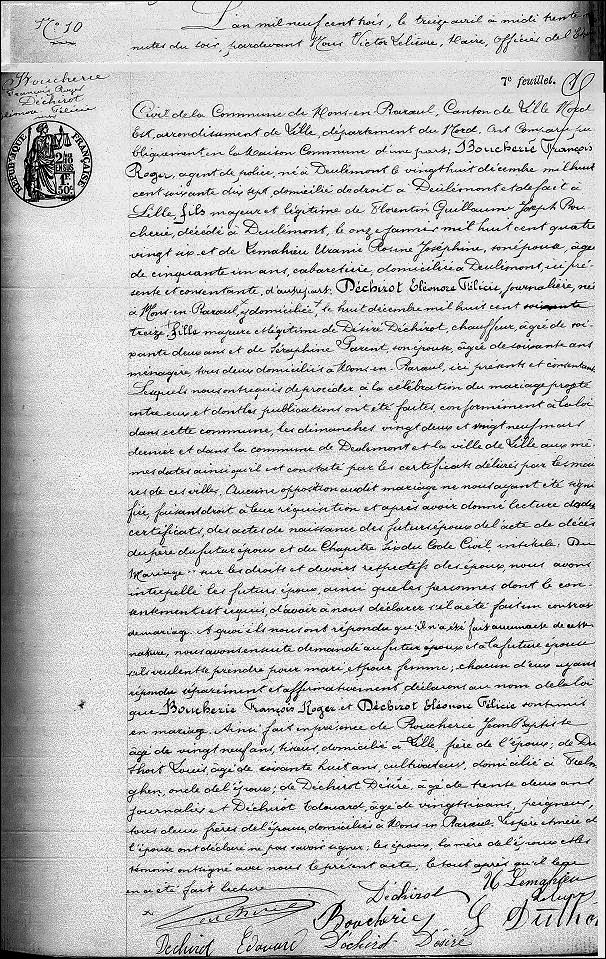 No 10
L'an mil neuf cent trois, le treize avril à midi trente mi
nutes du soir, pardevant Nous Victor Lelièvre, Maire, Officier de l'Etat
7e feuillet.
Boucherie
François Roger
Déchirot
Eléonore Félicie
REPUBLIQUE FRANÇAISE
Civil de la Commune de Mons-en-Barœul, Canton de Lille Nord
Est, arrondissement de Lille, département du Nord, ont comparu pu
bliquement en la Maison Commune d'une part, Boucherie François
Roger, agent de police, né à Deulémont le vingt huit décembre mil huit
cent soixante dix sept domicilié de droit à Deûlémont et de fait à
Lille, fils majeur et légitime de Florentin Guillaume Joseph Bou
cherie, décédé à Deulémont, le onze janvier mil huit cent quatre
vingt six et de Lemahieu Uranie Rosine Joséphine, son épouse, âgée
de cinquante un ans, cabaretière, domiciliée à Deulémont, ici pré
sente et consentante, d'autre part, Déchirot Eléonore Félicie journalière, née
à Mons-en-Barœul, y domiciliée, le huit décembre mil huit cent soixante
treize fille majeure et légitime de Désiré Déchirot, chauffeur, âgé de soi
xante deux ans et de Séraphine Parent, son épouse, âgée de soixante ans
ménagère, tous deux domiciliés à Mons-en-Barœul, ici présents et consentants
Lesquels nous ont requis de procéder à la célébration du mariage projeté
entre eux et dont les publications ont été faites conformément à la loi
dans cette commune, les dimanches vingt deux et vingt neuf mars
dernier et dans la commune de Deulémont et la ville de Lille aux mê
mes dates ainsi qu'il est constaté par les certificats délivrés par les mai
res de ces villes. Aucune opposition audit mariage ne nous ayant été signi
fiée, faisant droit à leur réquisition et après avoir donné lecture desdits
certificats, des actes de naissance des futurs époux de l'acte de décès
du père du futur époux et du Chapitre six du Code Civil intitulé: Du
Mariage, sur les droits et devoirs respectifs des époux, nous avons
interpellé les futurs époux, ainsi que les personnes dont le con
sentement est requis, d'avoir à nous déclarer s'il a été fait un contrat
de mariage. A quoi ils nous ont répondu qu'il n'a été fait aucun acte de cette
nature, nous avons ensuite demandé au futur époux et à la future épouse
s'ils veulent se prendre pour mari et pour femme; chacun d'eux ayant
répondu séparément et affirmativement déclarons au nom de la loi
que Boucherie François Roger et Déchirot Eléonore Félicie sont unis
en mariage. Ainsi fait en présence de Boucherie Jean Baptiste
âgé de vingt neuf ans, tisseur, domicilié à Lille, frère de l'époux; de Du
thoit Louis, âgé de soixante huit ans, cultivateur, domicilié à
oncle de l'époux; de Déchirot Désiré, âgé de trente deux ans
journalier et Déchirot Edouard, âgé de vingt six ans, peigneur,
tous deux frères de l'épouse, domiciliés à Mons en Barœul. Le père et mère de
l'épouse ont déclaré ne pas savoir signer; les époux, la mère de l'époux et les
témoins ont signé avec nous le présent acte, le tout après qu'il leur
en a été fait lecture
Déchirot U Lemahieu
Boucherie Boucherie L Duthoit
Déchirot Edouard Déchirot Désiré